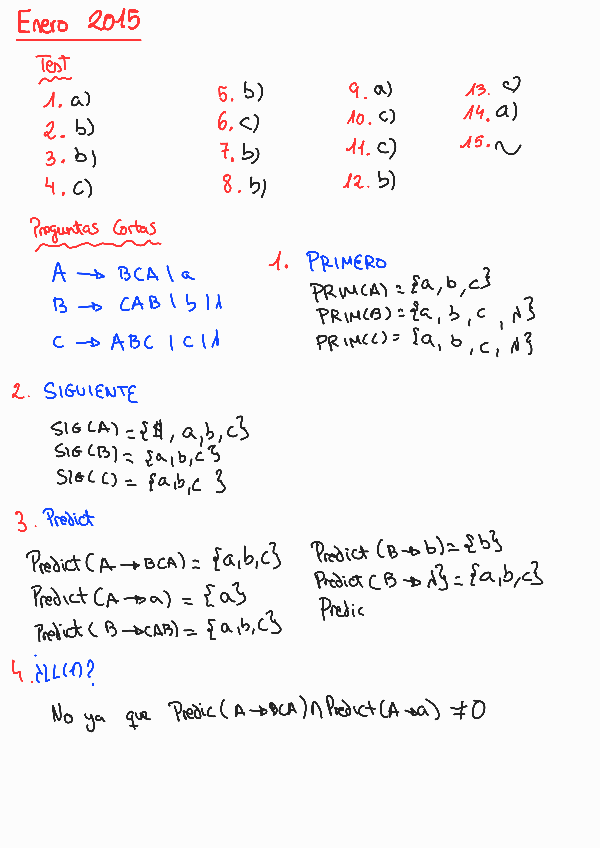 Enero 2015
Test
1. a)
2. b)
3. b)
4. c)
5. b)
6. c)
7. b)
8. b)
9. a)
10. c)
11. c)
12. b)
13.
14. a)
15. ~
Preguntas Cortas
A → BCA | a
B → CAB | b | λ
C → ABC | c | λ
1. PRIMERO
PRIM(A) = {a, b, c}
PRIM(B) = {a, b, c, λ}
PRIM(C) = {a, b, c, λ}
2. SIGUIENTE
SIG(A) = {$, a, b, c}
SIG(B) = {a, b, c}
SIG(C) = {a, b, c}
3. Predict
Predict(A → BCA) = {a, b, c}
Predict(A → a) = {a}
Predict(B → CAB) = {a, b, c}
Predict(B → b) = {b}
Predict(B → λ} = {a, b, c}
Predic
4. ¿LL(1)?
No ya que Predic(A → BCA) ∩ Predict(A → a) ≠ 0